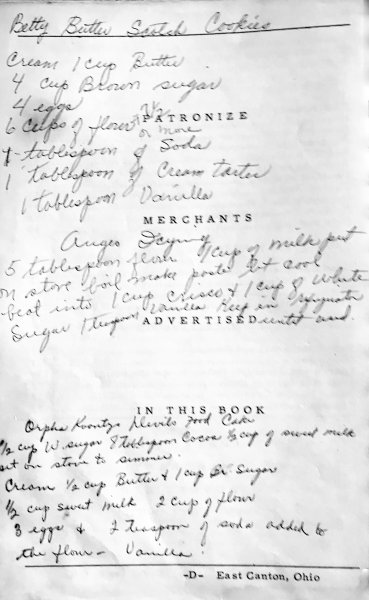 Betty Butter Scotsh Cookies
Cream 1 cup Butter
4 cup Brown sugar
4 eggs
6 cups of flour 1/2
or more
PATRONIZE
1 tablespoon of Soda
1 tablespoon of Cream tarter
1 tablespoon Vanilla
MERCHANTS
Anges Icying
5 tablespoon flour 1 cup of milk put
on stove boil make paste let cool
beat into 1 cup Crisco & 1 cup of White
Sugar 1 teaspoon Vanilla Keep in
ADVERTISED
until used.
IN THIS BOOK
Orpha Koontzs Devils Food Cake
1/2 cup W. sugar 8 tablespoon Cocoa 1/2 cup of sweet milk
set on stove to simmer.
Cream 1/2 cup Butter & 1 cup Br. Sugar
1/2 cup sweet milk 2 cup of flour
3 eggs & 2 teaspoon of soda added to
the flour - Vanilla.
-D- East Canton, Ohio